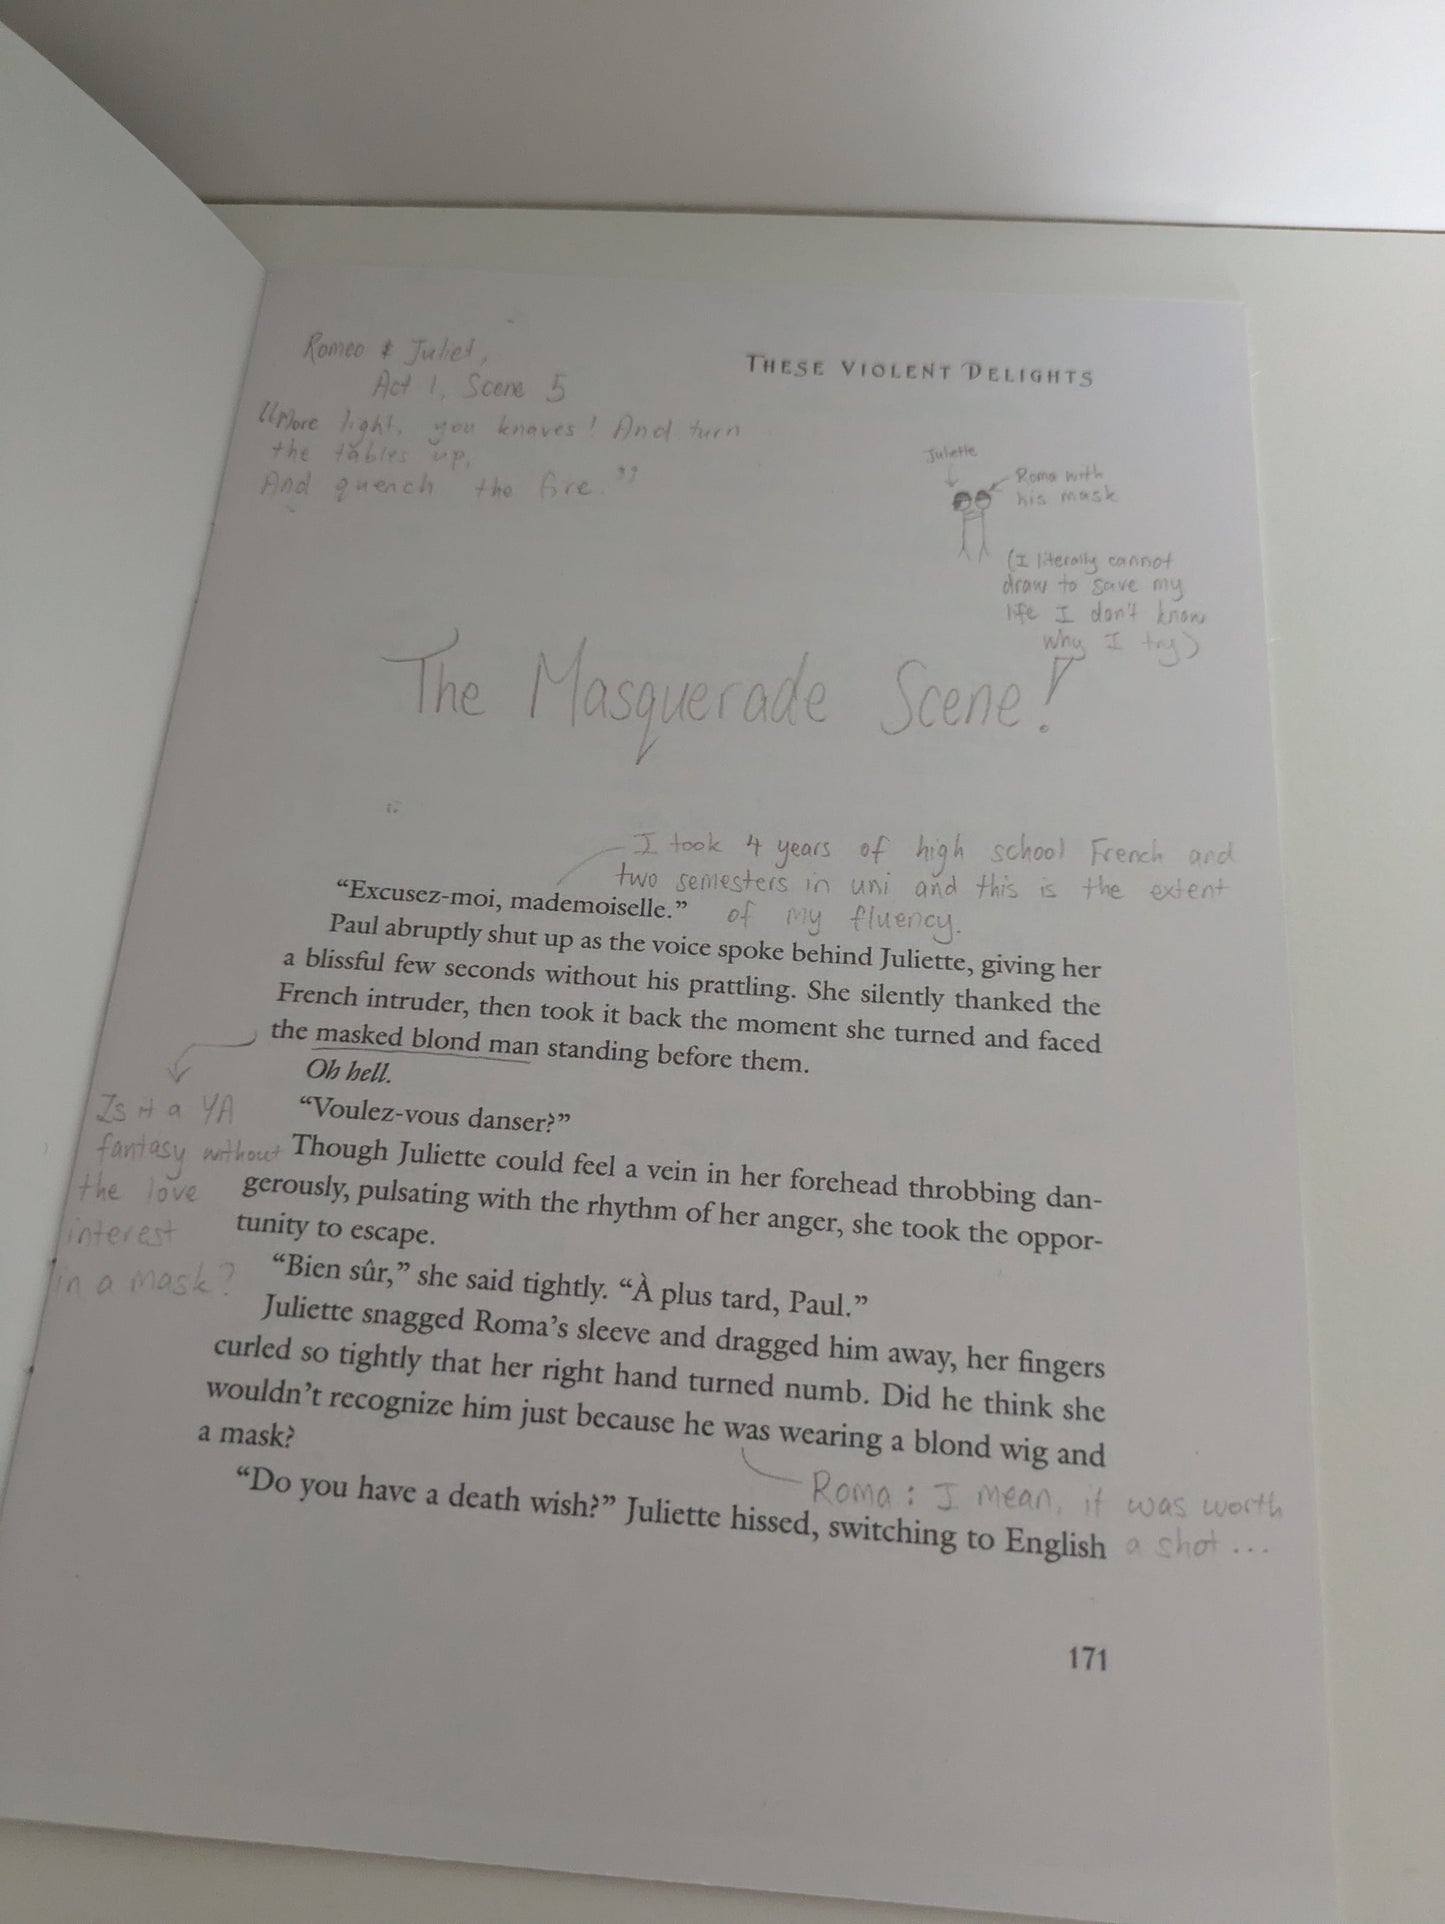 Romeo & Juliet,
Act 1, Scene 5
"More light, you knaves! And turn
the tables up,
And quench the fire."
THESE VIOLENT DELIGHTS
Juliette
Roma with
his mask
(I literally cannot
draw to save my
life I don't know
why I try)
The Masquerade Scene!
I took 4 years of high school French and
two semesters in uni and this is the extent
of my fluency.
“Excusez-moi, mademoiselle.”
Paul abruptly shut up as the voice spoke behind Juliette, giving her
a blissful few seconds without his prattling. She silently thanked the
French intruder, then took it back the moment she turned and faced
the masked blond man standing before them.
Oh hell.
Is it a YA
fantasy without
the love
interest
in a mask?
“Voulez-vous danser?”
Though Juliette could feel a vein in her forehead throbbing dan-
gerously, pulsating with the rhythm of her anger, she took the oppor-
tunity to escape.
“Bien sûr,” she said tightly. “À plus tard, Paul.”
Juliette snagged Roma’s sleeve and dragged him away, her fingers
curled so tightly that her right hand turned numb. Did he think she
wouldn’t recognize him just because he was wearing a blond wig and
a mask?
Roma: I mean, it was worth
a shot...
“Do you have a death wish?” Juliette hissed, switching to English
171